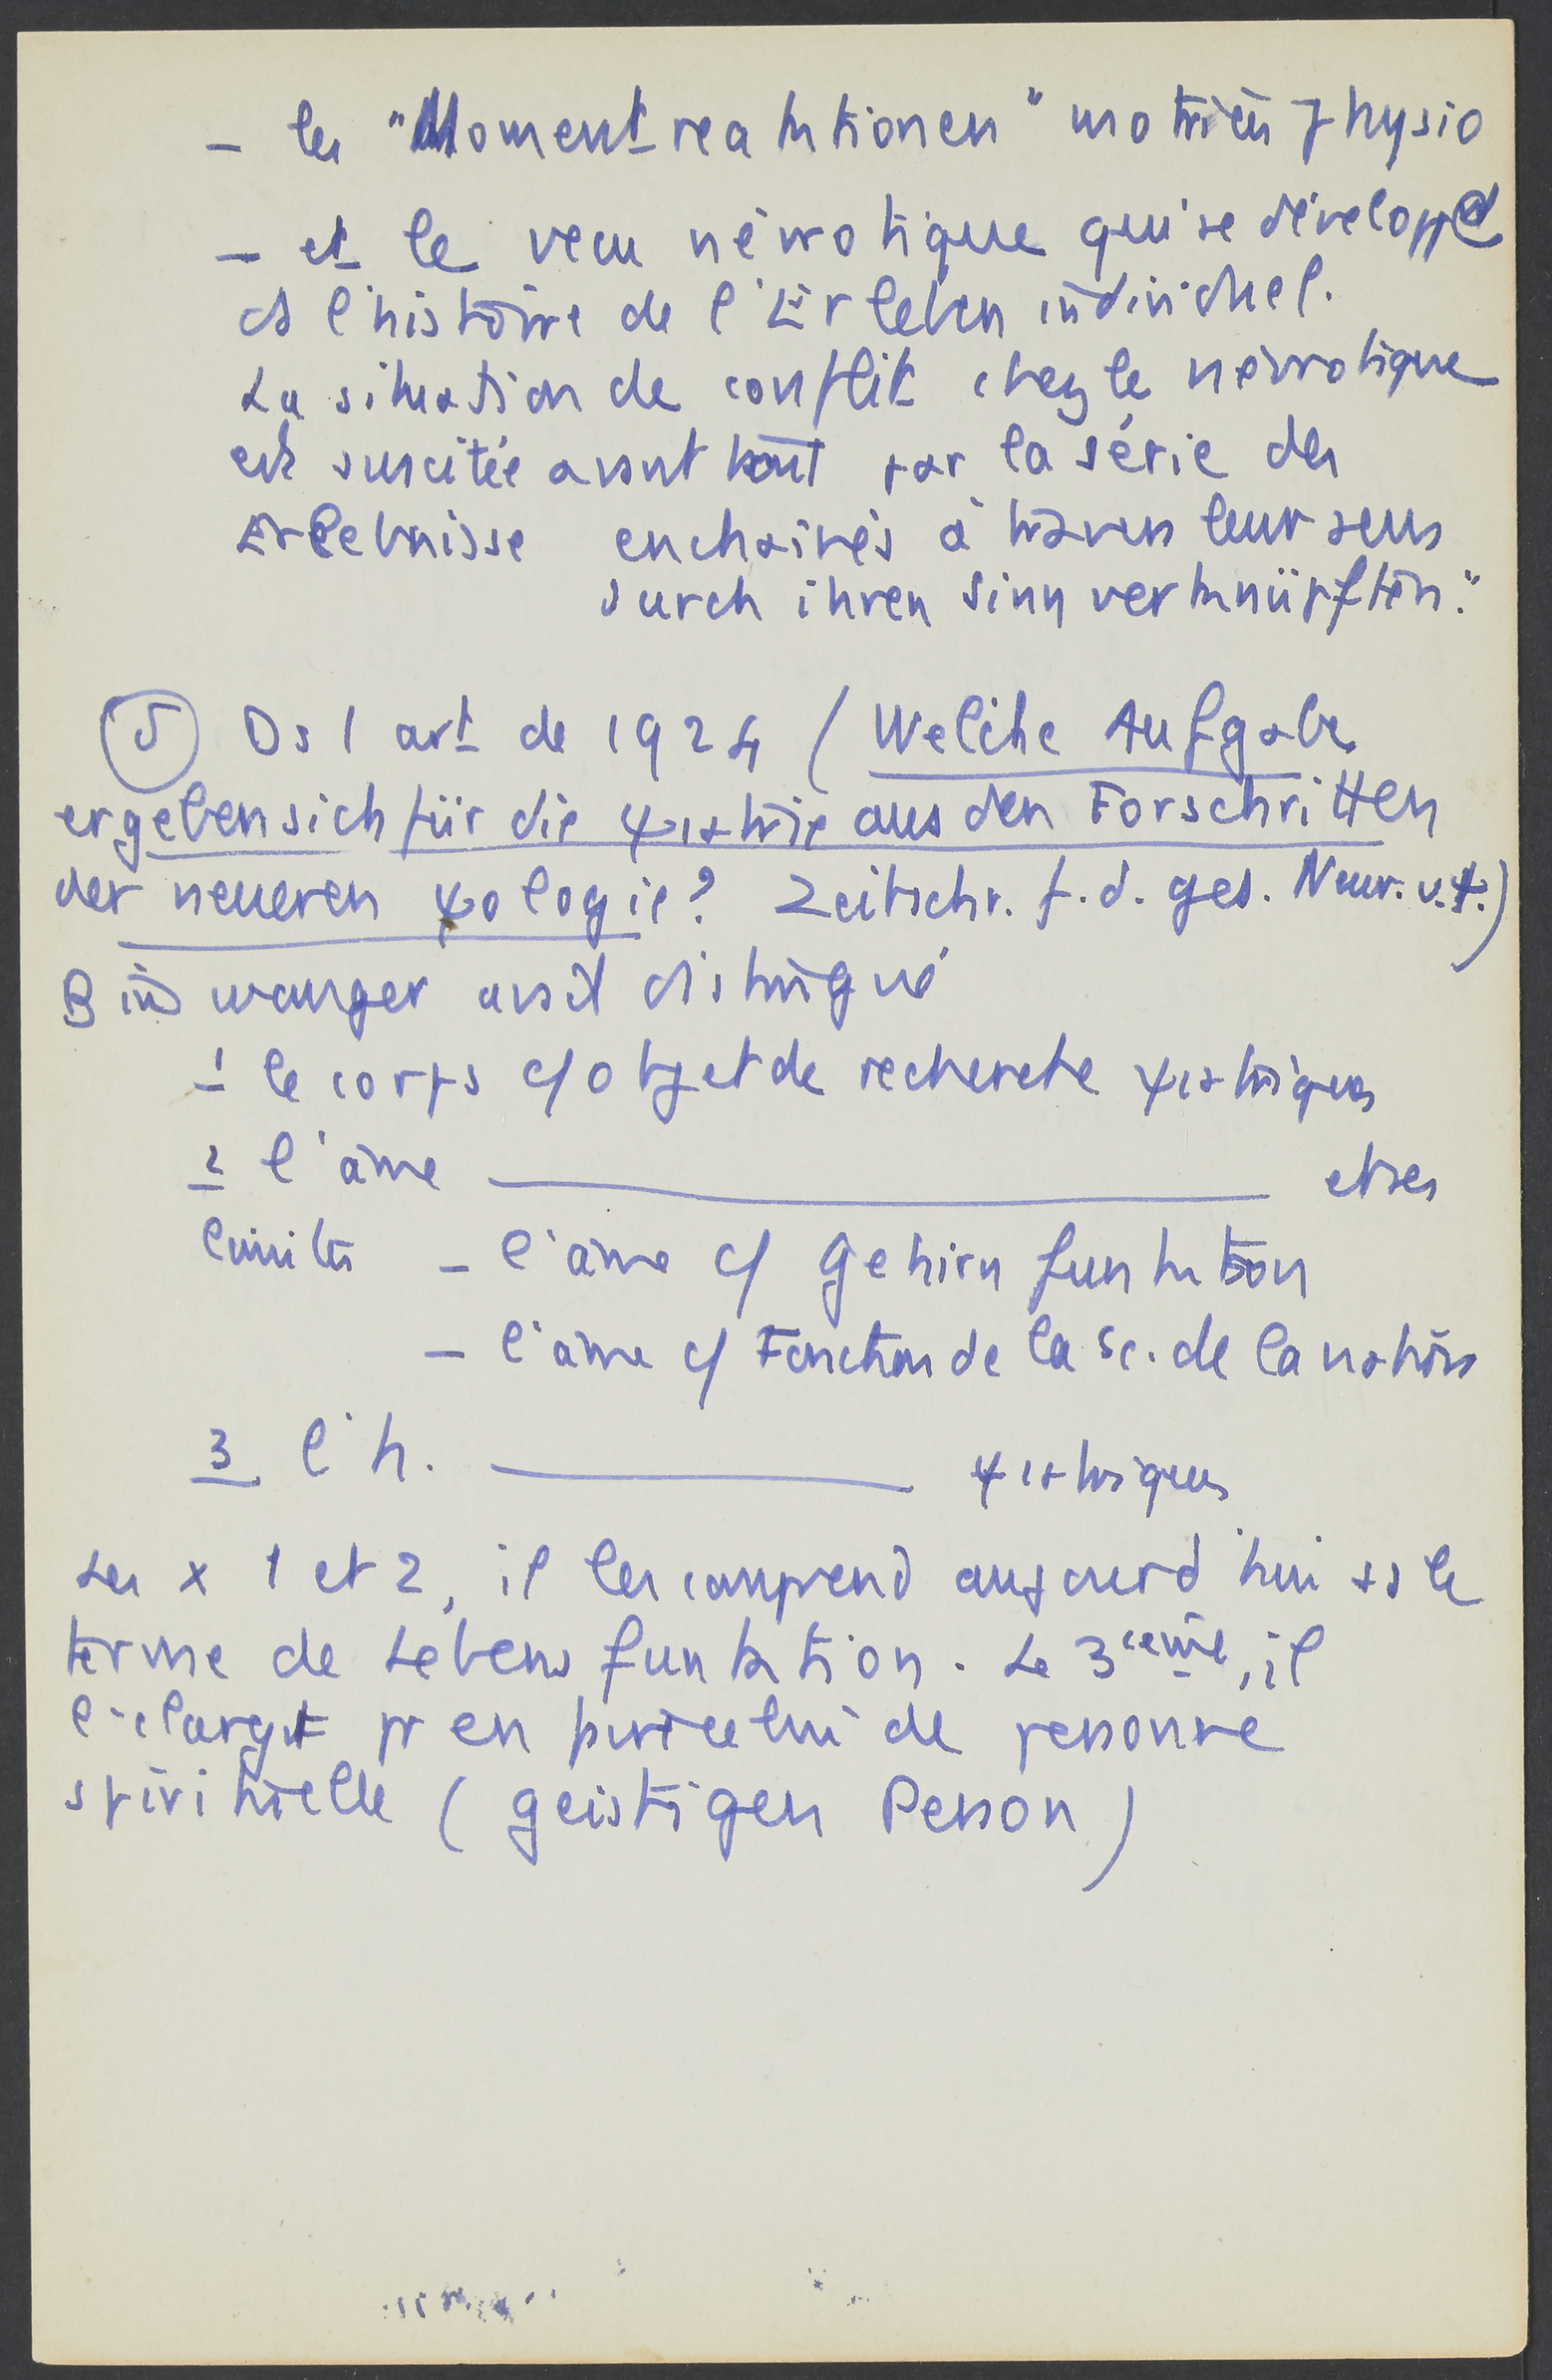 - les "Momentreaktionen" motrices physio
- et le vécu névrotique qui se développe
ds l'histoire de l'Erleben individuel.
La situation de conflit chez le névrotique
est suscitée avant tout par la série des
Erlebnisse enchaînés à travers leur sens
durch ihren Sinn verknüpften."
⑤ Ds l art de 1924 (Welche Aufgabe
ergeben sich für die ψiatrie aus den Forschritten
der neueren ψologie? Zeitschr. f. d. ges. Neur. u. ψ.)
Binswanger avait distingué
1 le corps c/ objet de recherche ψiatriques
2 l'âme ——— et ses
limites - l'âme c/ Gehirnfunktion
- l'âme c/ Fonction de la Sc. de la nature
3 l'h. ——— ψiatriques
Les x 1 et 2, il les comprend aujourd'hui ss le
terme de Lebensfunktion. Le 3ième, il
l'élargit pr en faire celui de personne
spirituelle (geistigen Person)